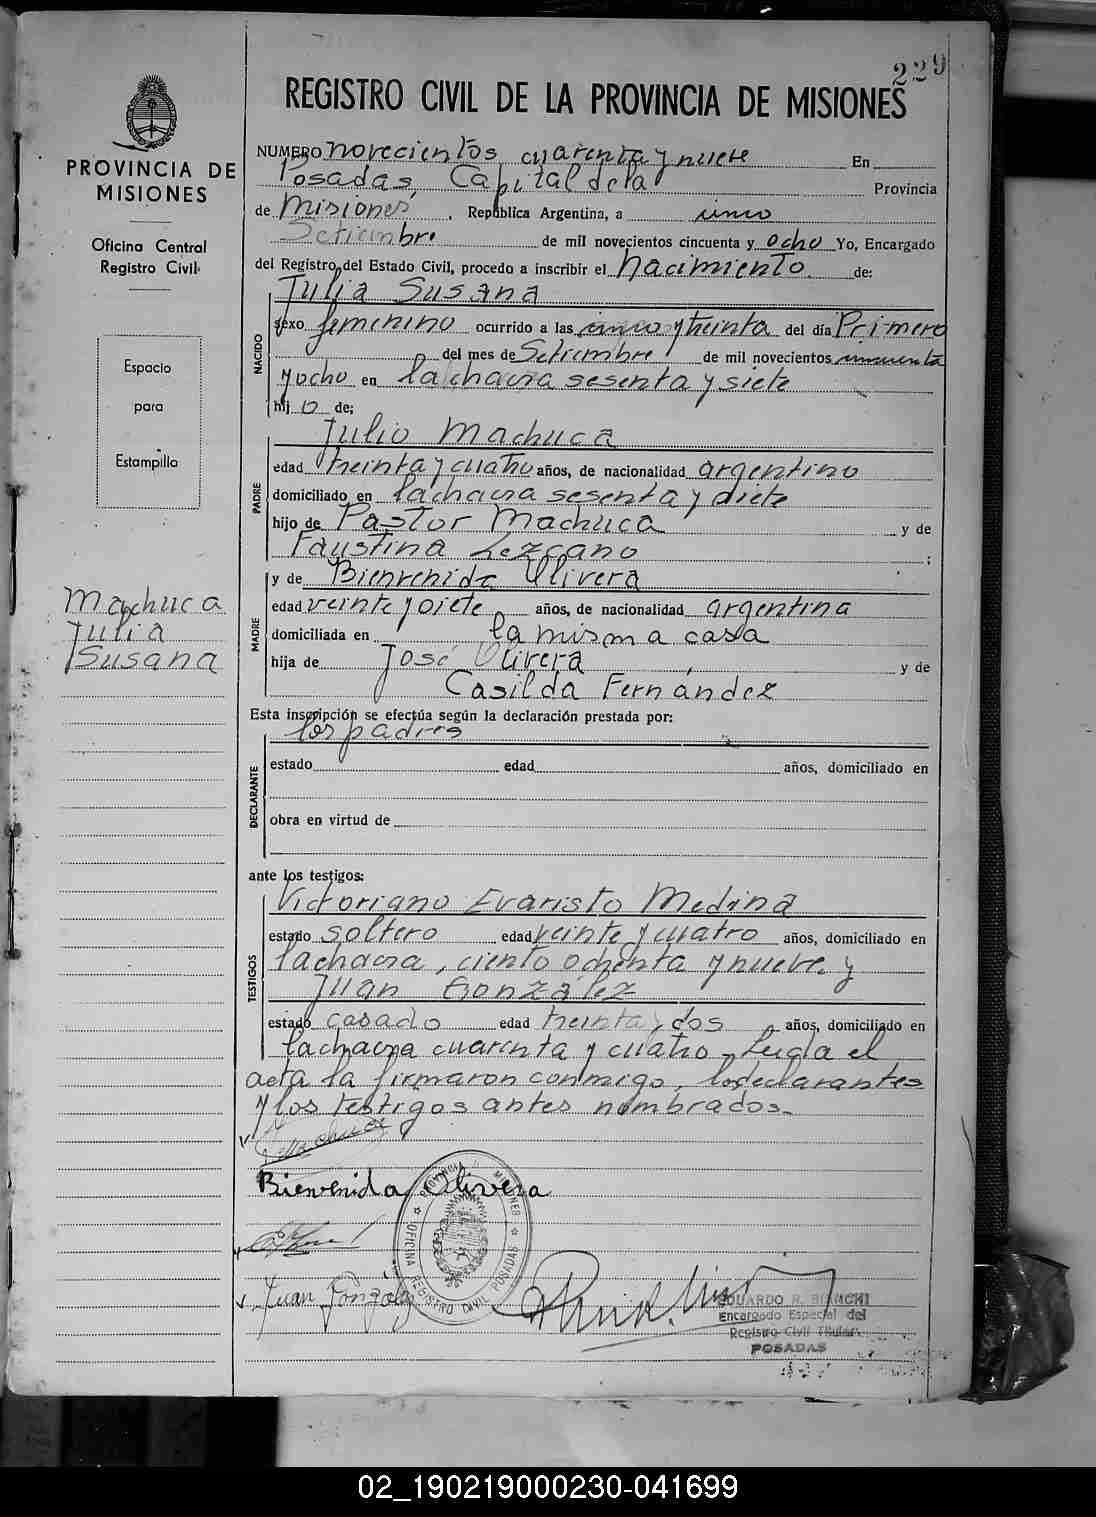 229
REGISTRO CIVIL DE LA PROVINCIA DE MISIONES
PROVINCIA DE
MISIONES
Oficina Central
Registro Civil
Espacio
para
Estampilla
Machuca
Julia
Susana
NUMERO novecientos cuarenta y nueve En
Posadas, Capital de la Provincia
de Misiones, República Argentina, a cinco
Setiembre de mil novecientos cincuenta y ocho Yo, Encargado
del Registro del Estado Civil, procedo a inscribir el nacimiento de:
NACIDO
Julia Susana
sexo femenino ocurrido a las cinco y treinta del día Primero
del mes de Setiembre de mil novecientos cincuenta
y ocho en la chacra sesenta y siete
hij o de:
PADRE
Julio Machuca
edad treinta y cuatro años, de nacionalidad argentino
domiciliado en la chacra sesenta y siete
hijo de Pastor Machuca y de
Faustina Lezcano ;
MADRE
y de Bienvenida Olivera
edad veinte y siete años, de nacionalidad argentina
domiciliada en la misma casa
hija de José Olivera y de
Casilda Fernández
Esta inscripción se efectúa según la declaración prestada por:
los padres
DECLARANTE
estado edad años, domiciliado en
obra en virtud de
ante los testigos:
TESTIGOS
Victoriano Evaristo Medina
estado soltero edad veinte y cuatro años, domiciliado en
la chacra, ciento ochenta y nueve y
Juan González
estado casado edad treinta y dos años, domiciliado en
la chacra cuarenta y cuatro. Leida el
acta la firmaron conmigo, los declarantes
y los testigos antes nombrados.
Bienvenida Olivera
Juan González
PROVINCIA MISIONES
OFICINA REGISTRO CIVIL POSADAS
EDUARDO R. BIANCHI
Encargado Especial del
Registro Civil Titular
POSADAS
02_190219000230-041699